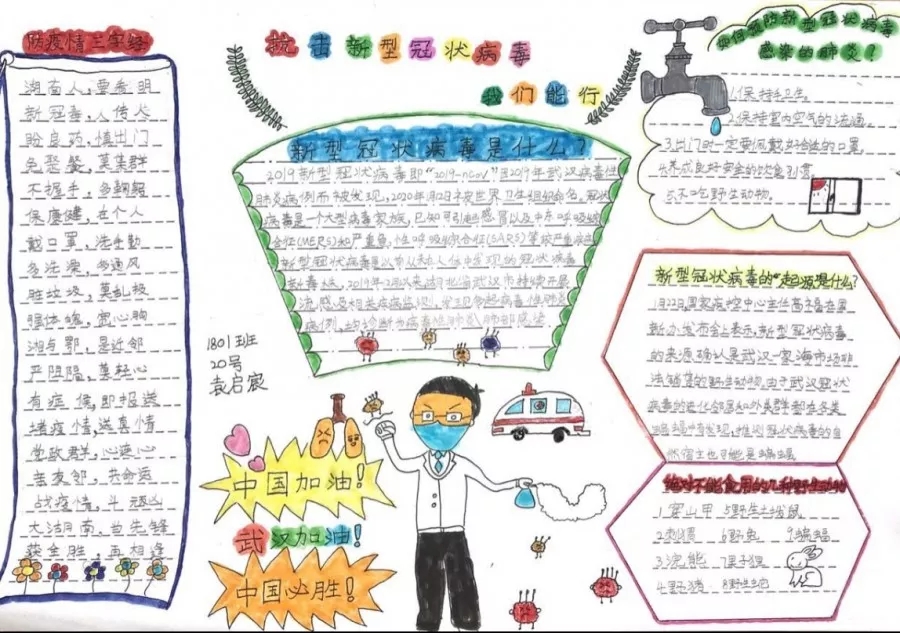 防疫情三字经
湖南人，要看明
新冠毒，人传人
盼良药，慎出门
免聚餐，莫集群
不握手，多鞠躬
保康健，在个人
戴口罩，洗手勤
多洗澡，多通风
脏垃圾，莫乱扔
强体魄，宽心胸
湘与鄂，是近邻
严阴隔，莫轻心
有症候，即报送
堵疫情，送真情
党政群，心连心
若友邻，共命运
战疫情，斗顽凶
大湖南，当先锋
获全胜，再相逢
抗击新型冠状病毒
我们能行
新型冠状病毒是什么？
2019新型冠状病毒即“2019-nCoV”因2019年武汉病毒性
肺炎病例而被发现，2020年1月12日被世界卫生组织命名。冠状
病毒是一个大型病毒家族，已知可引起感冒以及中东呼吸综
合征(MERS)和严重急性呼吸综合征(SARS)等较严重疾病
新型冠状病毒是以前从未在人体中发现的冠状病毒
新毒株，2019年12月以来湖北省武汉市持续开展
流感及相关疾病监测，发现多起病毒性肺炎
病例，均诊断为病毒性肺炎/肺部感染
如何预防新型冠状病毒
感染的肺炎？
1.保持手卫生。
2.保持室内空气的流通。
3.出门时一定要佩戴好合法的口罩。
4.养成良好安全的饮食习惯。
5.不吃野生动物。
新型冠状病毒的“起源”是什么？
1月22日，国家疾控中心主任高福在国
新办发布会上表示，新型冠状病毒
的来源确认是武汉一家海市场非
法销售的野生动物。由于武汉冠状
病毒的进化邻居和外类群都在各类
蝙蝠中有发现，推测冠状病毒的自
然宿主也可能是蝙蝠
绝对不能食用的几种野生动物
1.穿山甲 5野生土拨鼠
2.类猬 6野兔 9蝙蝠
3.浣熊 7果子狸
4.野猪 8野生蛇
1801班
20号
袁启宸
中国加油！
武汉加油！
中国必胜！